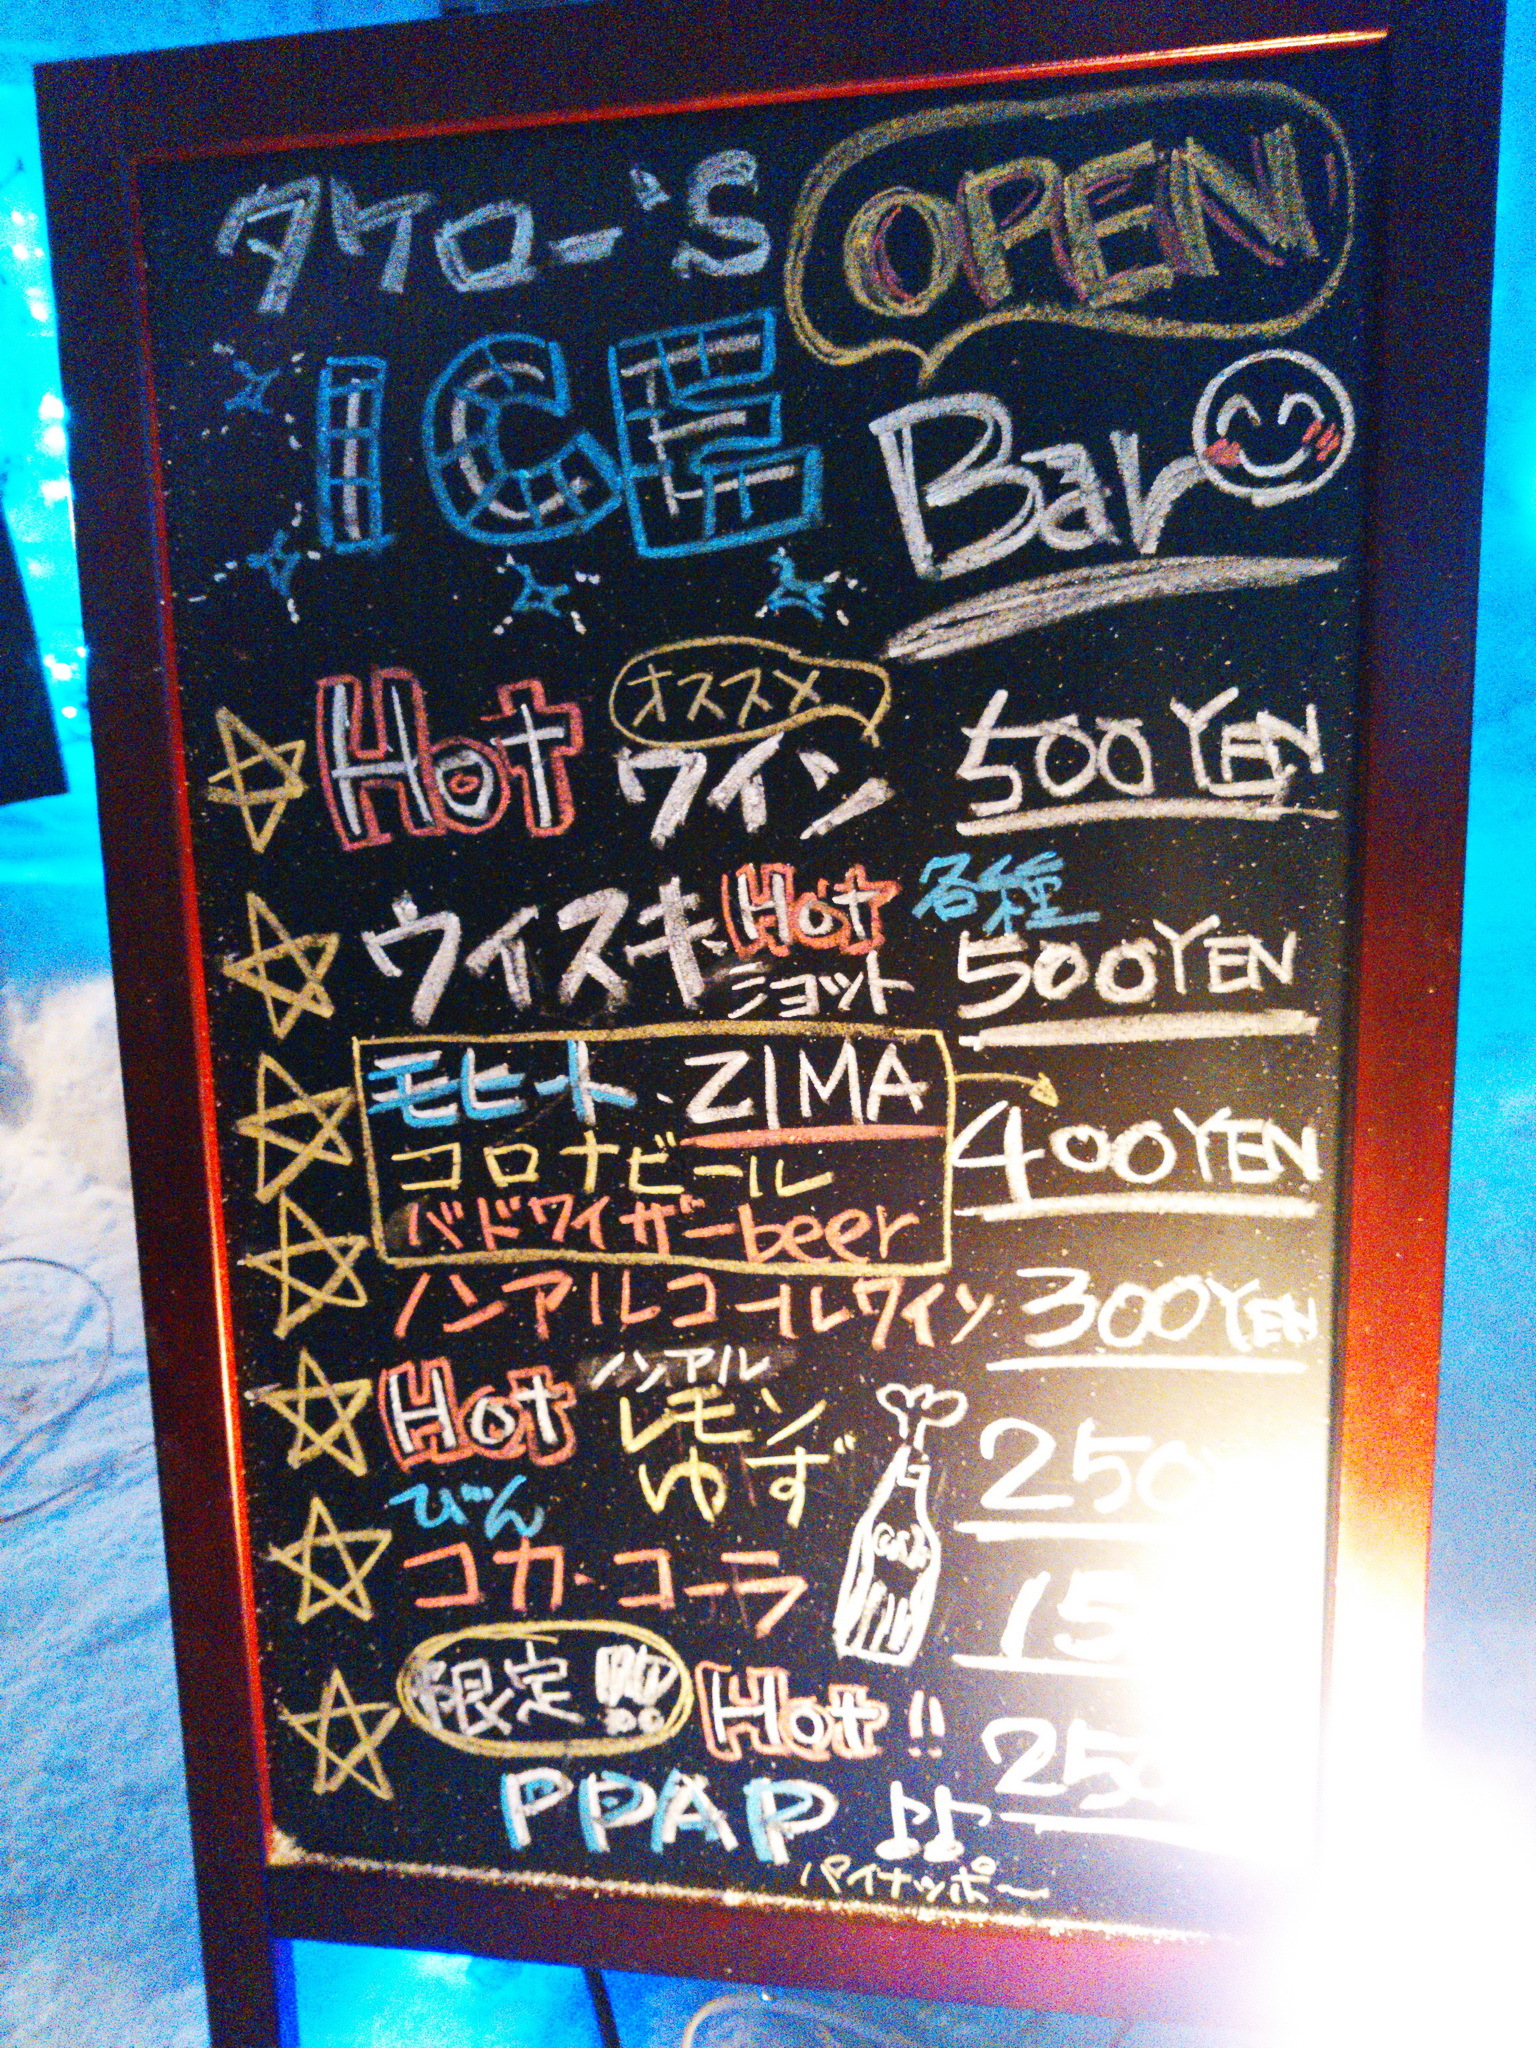 タケロー'S
OPEN
ICE Bar
オススメ
Hot ワイン 500YEN
ウイスキー Hot ショット 各種 500YEN
モヒート・ZIMA 400YEN
コロナビール
バドワイザーbeer
ノンアルコールワイン 300YEN
Hot ノンアル
レモン
ゆず 250
びん
コカ・コーラ 15
限定!!! Hot!! 25
PPAP ♪♪
パイナッポー